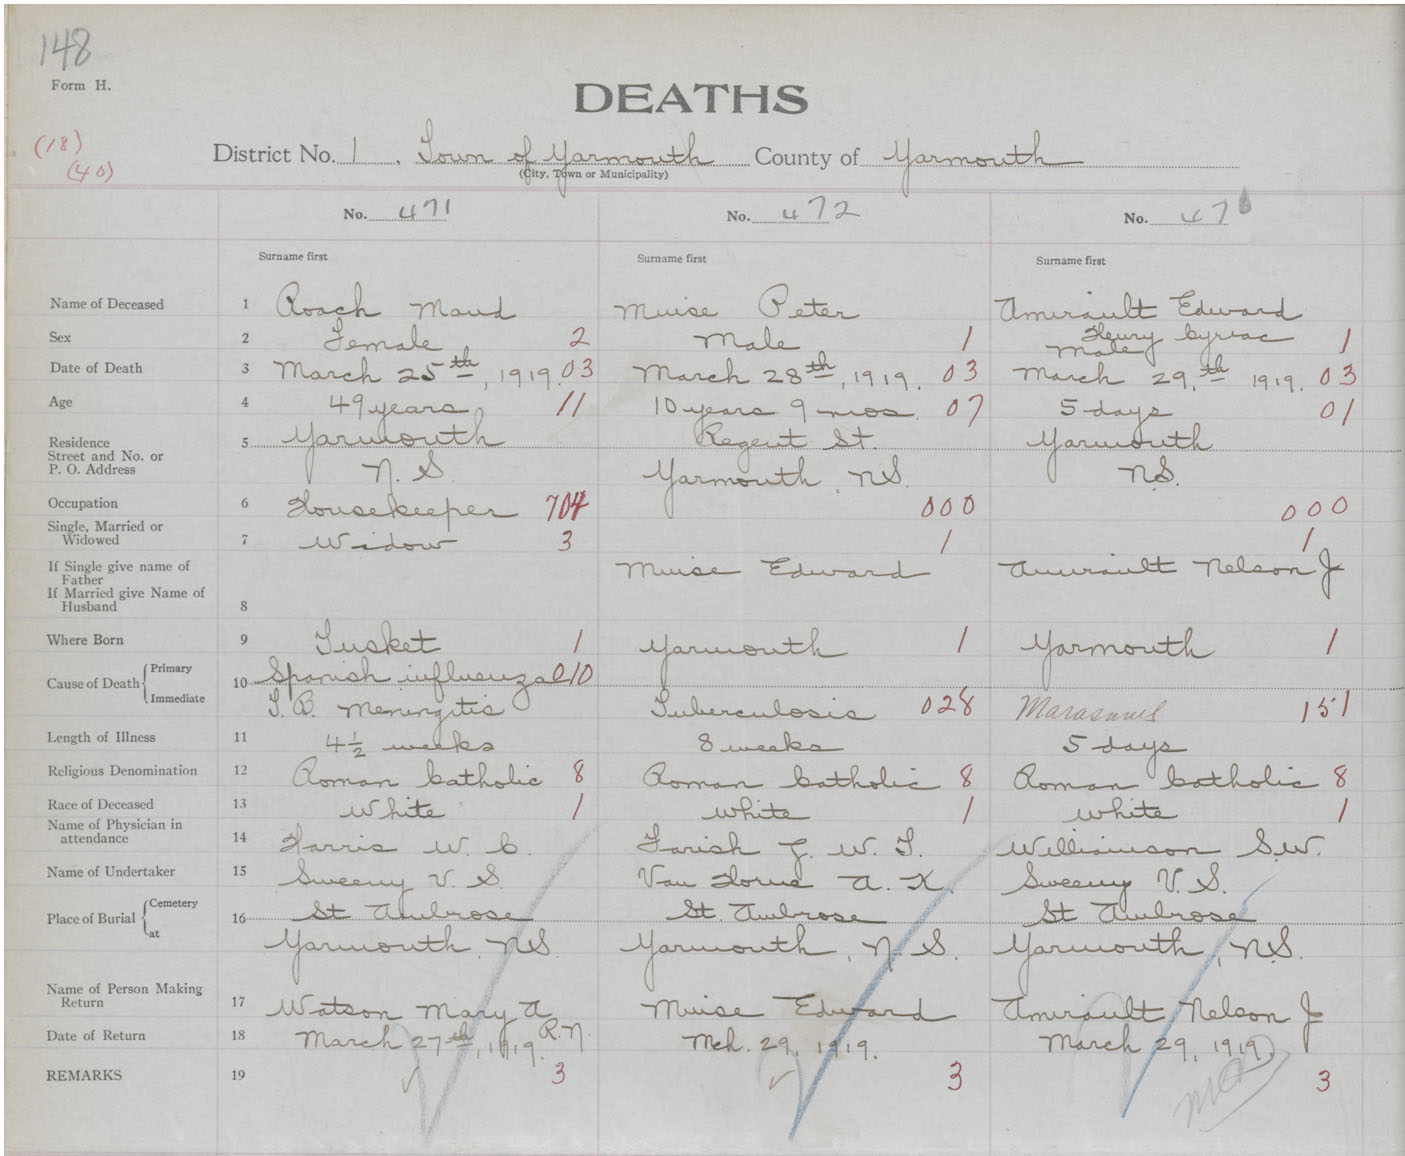 148
Form H.
DEATHS
(18)
(40)
District No. 1, Town of Yarmouth County of Yarmouth
(City, Town or Municipality)
No. 471 No. 472 No. 47
Surname first Surname first Surname first
Name of Deceased 1 Roach Maud Muise Peter Amirault Edward
Henry Cyriac
Sex 2 Female 2 Male 1 Male 1
Date of Death 3 March 25th, 1919. 03 March 28th, 1919. 03 March 29,th 1919. 03
Age 4 49 years 11 10 years 9 mos. 07 5 days 01
Residence 5 Yarmouth Regent St. Yarmouth
Street and No. or
P. O. Address N. S. Yarmouth, N.S. N.S.
Occupation 6 Housekeeper 704 000 000
Single, Married or
Widowed 7 Widow 3 1 1
If Single give name of
Father Muise Edward Amirault Nelson J
If Married give Name of
Husband 8
Where Born 9 Tusket 1 Yarmouth 1 Yarmouth 1
Cause of Death Primary 10 Spanish influenza 010
Immediate T. B. Meningitis Tuberculosis 028 Marasmus 151
Length of Illness 11 4½ weeks 8 weeks 5 days
Religious Denomination 12 Roman Catholic 8 Roman Catholic 8 Roman Catholic 8
Race of Deceased 13 White 1 White 1 White 1
Name of Physician in
attendance 14 Harris W. C. Farish G. W. T. Williamson S.W.
Name of Undertaker 15 Sweeny V. S. Van Horne A. K. Sweeny V. S.
Place of Burial Cemetery 16 St Ambrose St. Ambrose St Ambrose
at Yarmouth, N.S. Yarmouth, N. S. Yarmouth, N.S.
Name of Person Making
Return 17 Watson Mary A Muise Edward Amirault Nelson J
R.N.
Date of Return 18 March 27th, 1919. Mch. 29, 1919. March 29, 1919.
REMARKS 19 3 3 3